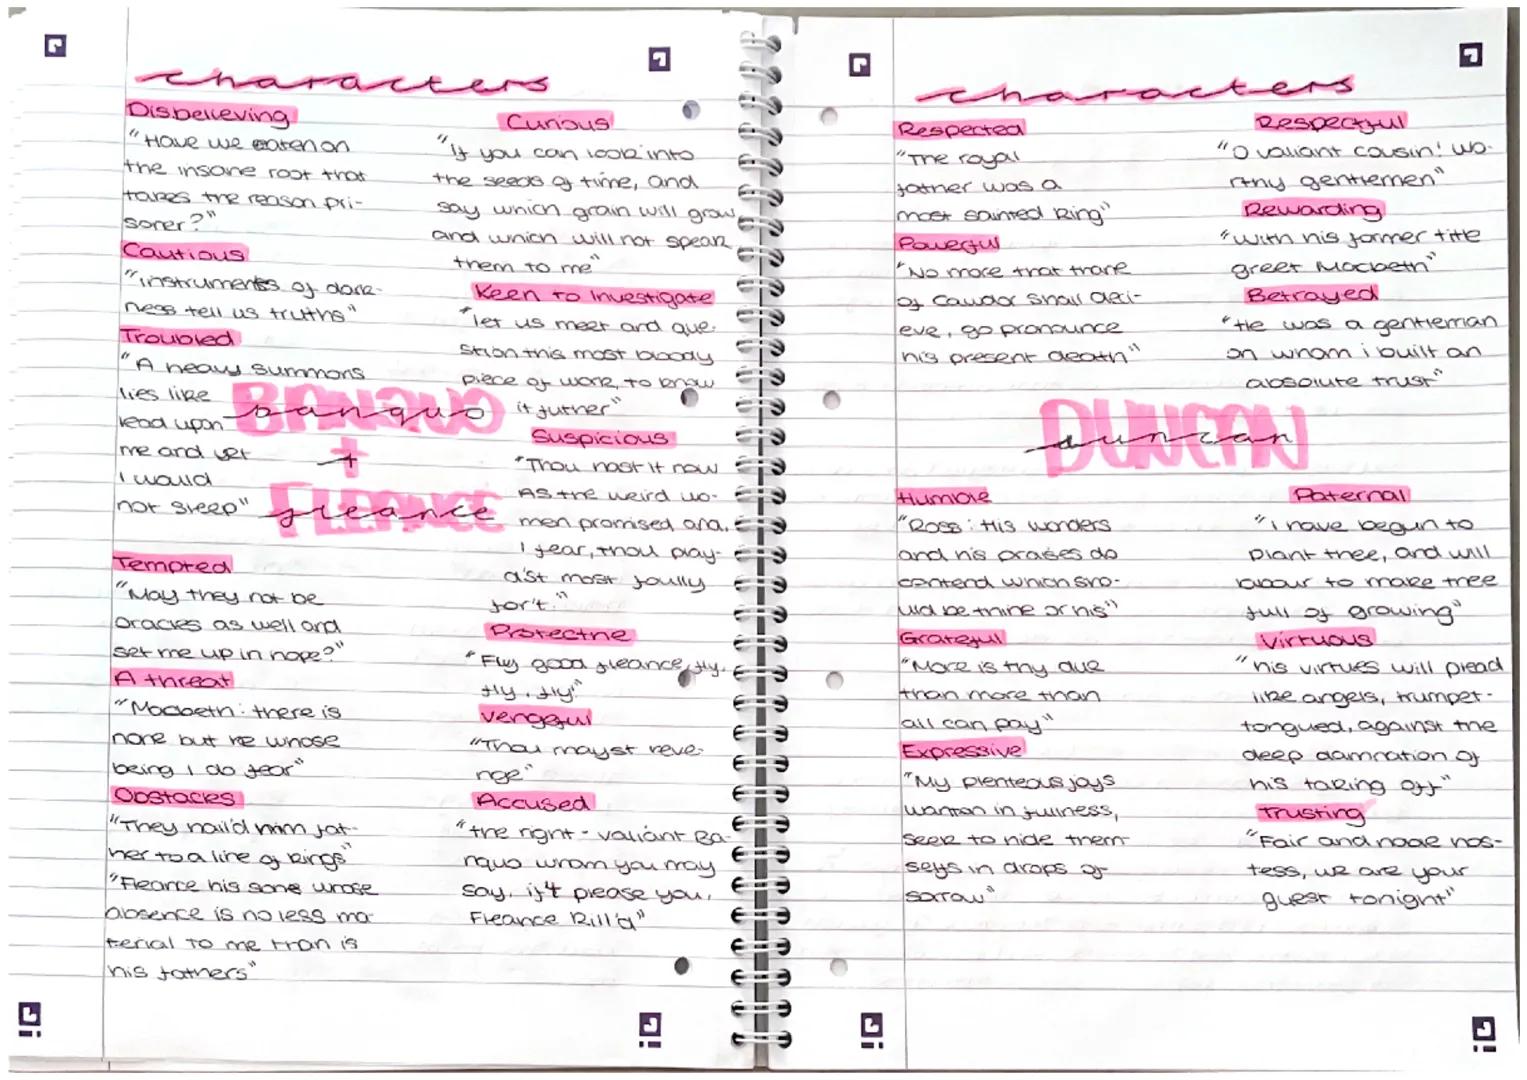 characters
Disbelieving
"Have we eaten on
the insane root that
takes the reason pri-
soner?"
Cautious
"instruments of dark-
ness tell us truths"
Troubled
"A heavy summons
lies like
lead upon
me and yet
I would
not sleep"
BANQUO
banquo
+
FLEANCE
fleance
Tempted
"May they not be
oracles as well and
set me up in hope?"
A threat
"Macbeth: there is
none but he whose
being I do fear"
Obstacles
"They hail'd him fat-
her to a line of kings"
"Fleance his sons whose
absence is no less ma-
terial to me than is
his fathers"
Curious
"If you can look into
the seeds of time, and
say which grain will grow
and which will not speak
them to me"
Keen to Investigate
"let us meet and que-
stion this most bloody
piece of work, to know
it futher"
Suspicious
"Thou hast it now
As the weird wo-
men promised and,
I fear, thou play-
d'st most foully
for't."
Protective
"Fly good fleance, fly,
fly, fly!"
Vengeful
"Thou mayst reve-
nge"
Accused
"the right-valiant Ba-
nquo whom you may
say, if't please you,
Fleance kill'd"
characters
Respected
"The royal
father was a
most sainted king"
Powerful
"No more that thane
of Cawdor shall deci-
eve, go pronounce
his present death"
Respectful
"O valiant cousin! wo-
rthy gentlemen"
Rewarding
"with his former title
greet Macbeth"
Betrayed
"He was a gentleman
on whom i built an
absolute trust"
DUNCAN
duncan
Humble
"Ross: His wonders
and his praises do
contend which sho-
uld be thine or his"
Grateful
"More is thy due
than more than
all can pay"
Expressive
"My plenteous joys
wanton in fullness,
seek to hide them-
selfs in drops of
sorrow"
Paternal
"i have begun to
plant thee, and will
labour to make thee
full of growing"
Virtuous
"his virtues will plead
like angels, trumpet-
tongued, against the
deep damnation of
his taking off"
Trusting
"Fair and noble hos-
tess, we are your
guest tonight"